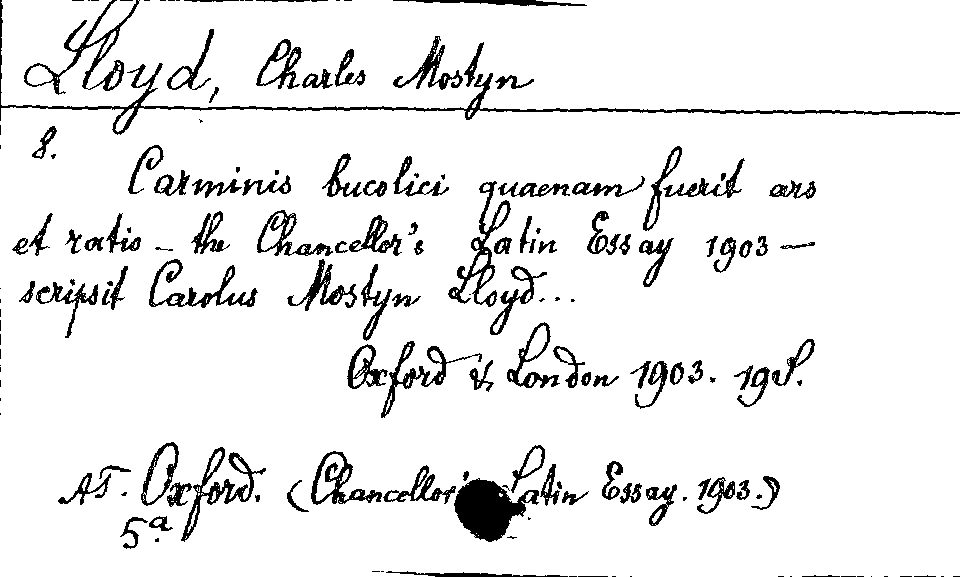 Lloyd, Charles Mostyn
8.
Carminis bucolici quaenam fuerit ars
et ratio – the Chancellor's Latin Essay 1903 –
scripsit Carolus Mostyn Lloyd...
Oxford & London 1903. 19 S.
AT. Oxford. (Chancellor's Latin Essay. 1903.)
5a.